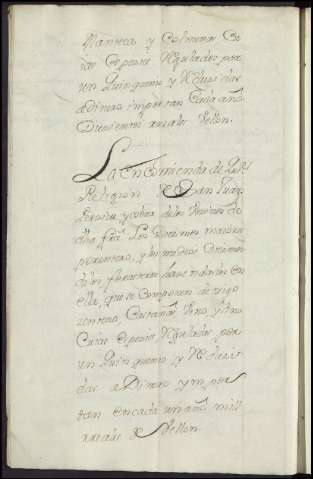 Manteca y Colmenas Cu
ias especies Reguladas por
un Quinquenio y Reducidas
a Dinero importan Cada año
Duscientos reales Vellon.
La Encomienda de la
Religion de San Juan
Perciue, y cobra de los Vecinos de
dha los Diezmos
y los medios Diezmos
de los forasteros que en
ella, que se componen de trigo
zenteno, Castañas, lino y otros
Cuias especies Reguladas por
un Quinquenio y Reduzi
das a Dinero ympor
tan en cada un año mill
reales de Vellon.